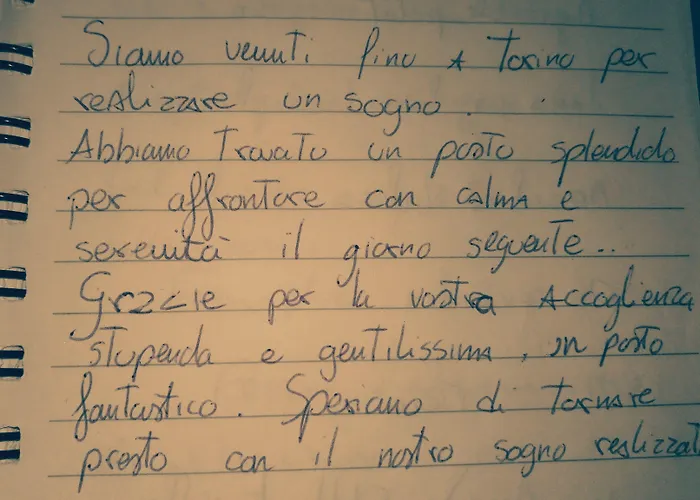 Siamo venuti fino A Torino per
reAlizzare un sogno.
Abbiamo Trovato un posto splendido
per affrontare con calma e
serenità il giorno seguente..
Grazie per la vostra Accoglienza
stupenda e gentilissima, un posto
fantastico. Speriamo di tornare
presto con il nostro sogno realizzat